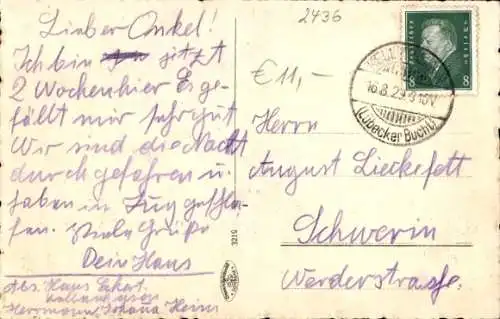 2436
Lieber Onkel!
Ich bin jetzt
2 Wochen hier Es ge-
fällt mir sehr gut
Wir sind die Nacht
durch gefahren u.
haben im Zug geschla-
fen. Viele Grüße
Dein Hans
Abs. Hans Eckert
Herrmann, Johana Heim
€ 11,-
DEUTSCHES REICH
8 8
16.8.29.
(Lübecker Bucht)
Herrn
August Lieckefett
Schwerin
Werderstraße.
3219